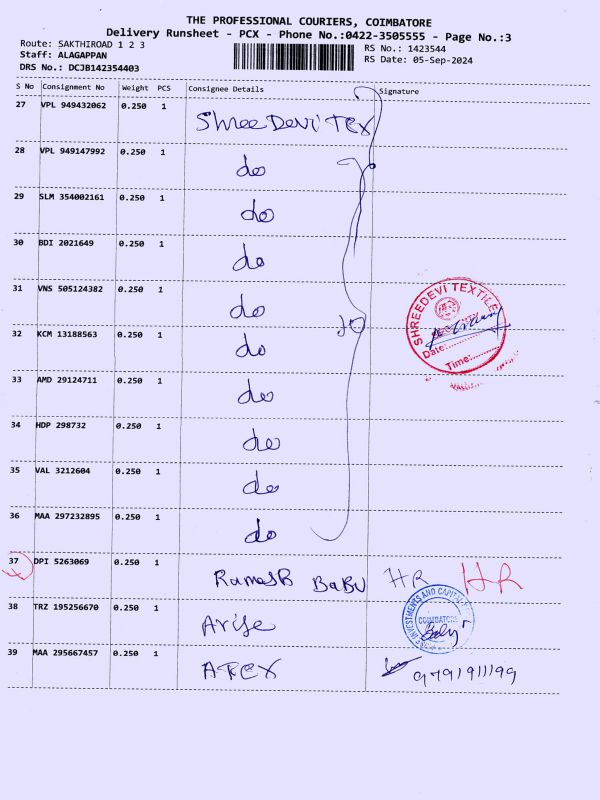 THE PROFESSIONAL COURIERS, COIMBATORE
Delivery Runsheet - PCX - Phone No.:0422-3505555 - Page No.:3
Route: SAKTHIROAD 1 2 3
Staff: ALAGAPPAN
DRS No.: DCJB142354403
RS No.: 1423544
RS Date: 05-Sep-2024
S No Consignment No Weight PCS Consignee Details Signature
27 VPL 949432062 0.250 1 Shree Devi TEX
28 VPL 949147992 0.250 1 do
29 SLM 354002161 0.250 1 do
30 BDI 2021649 0.250 1 do
31 VNS 505124382 0.250 1 do
SHREEDEVI TEXTILE
Date:
Time:
10
32 KCM 13188563 0.250 1 do
33 AMD 29124711 0.250 1 do
34 HDP 298732 0.250 1 do
35 VAL 3212604 0.250 1 do
36 MAA 297232895 0.250 1 do
37 DPI 5263069 0.250 1 Ramesh BaBU HR HR
38 TRZ 195256670 0.250 1 Arise
INVESTMENTS AND CAPITAL
COIMBATORE
39 MAA 295667457 0.250 1 ATEX 9791911199